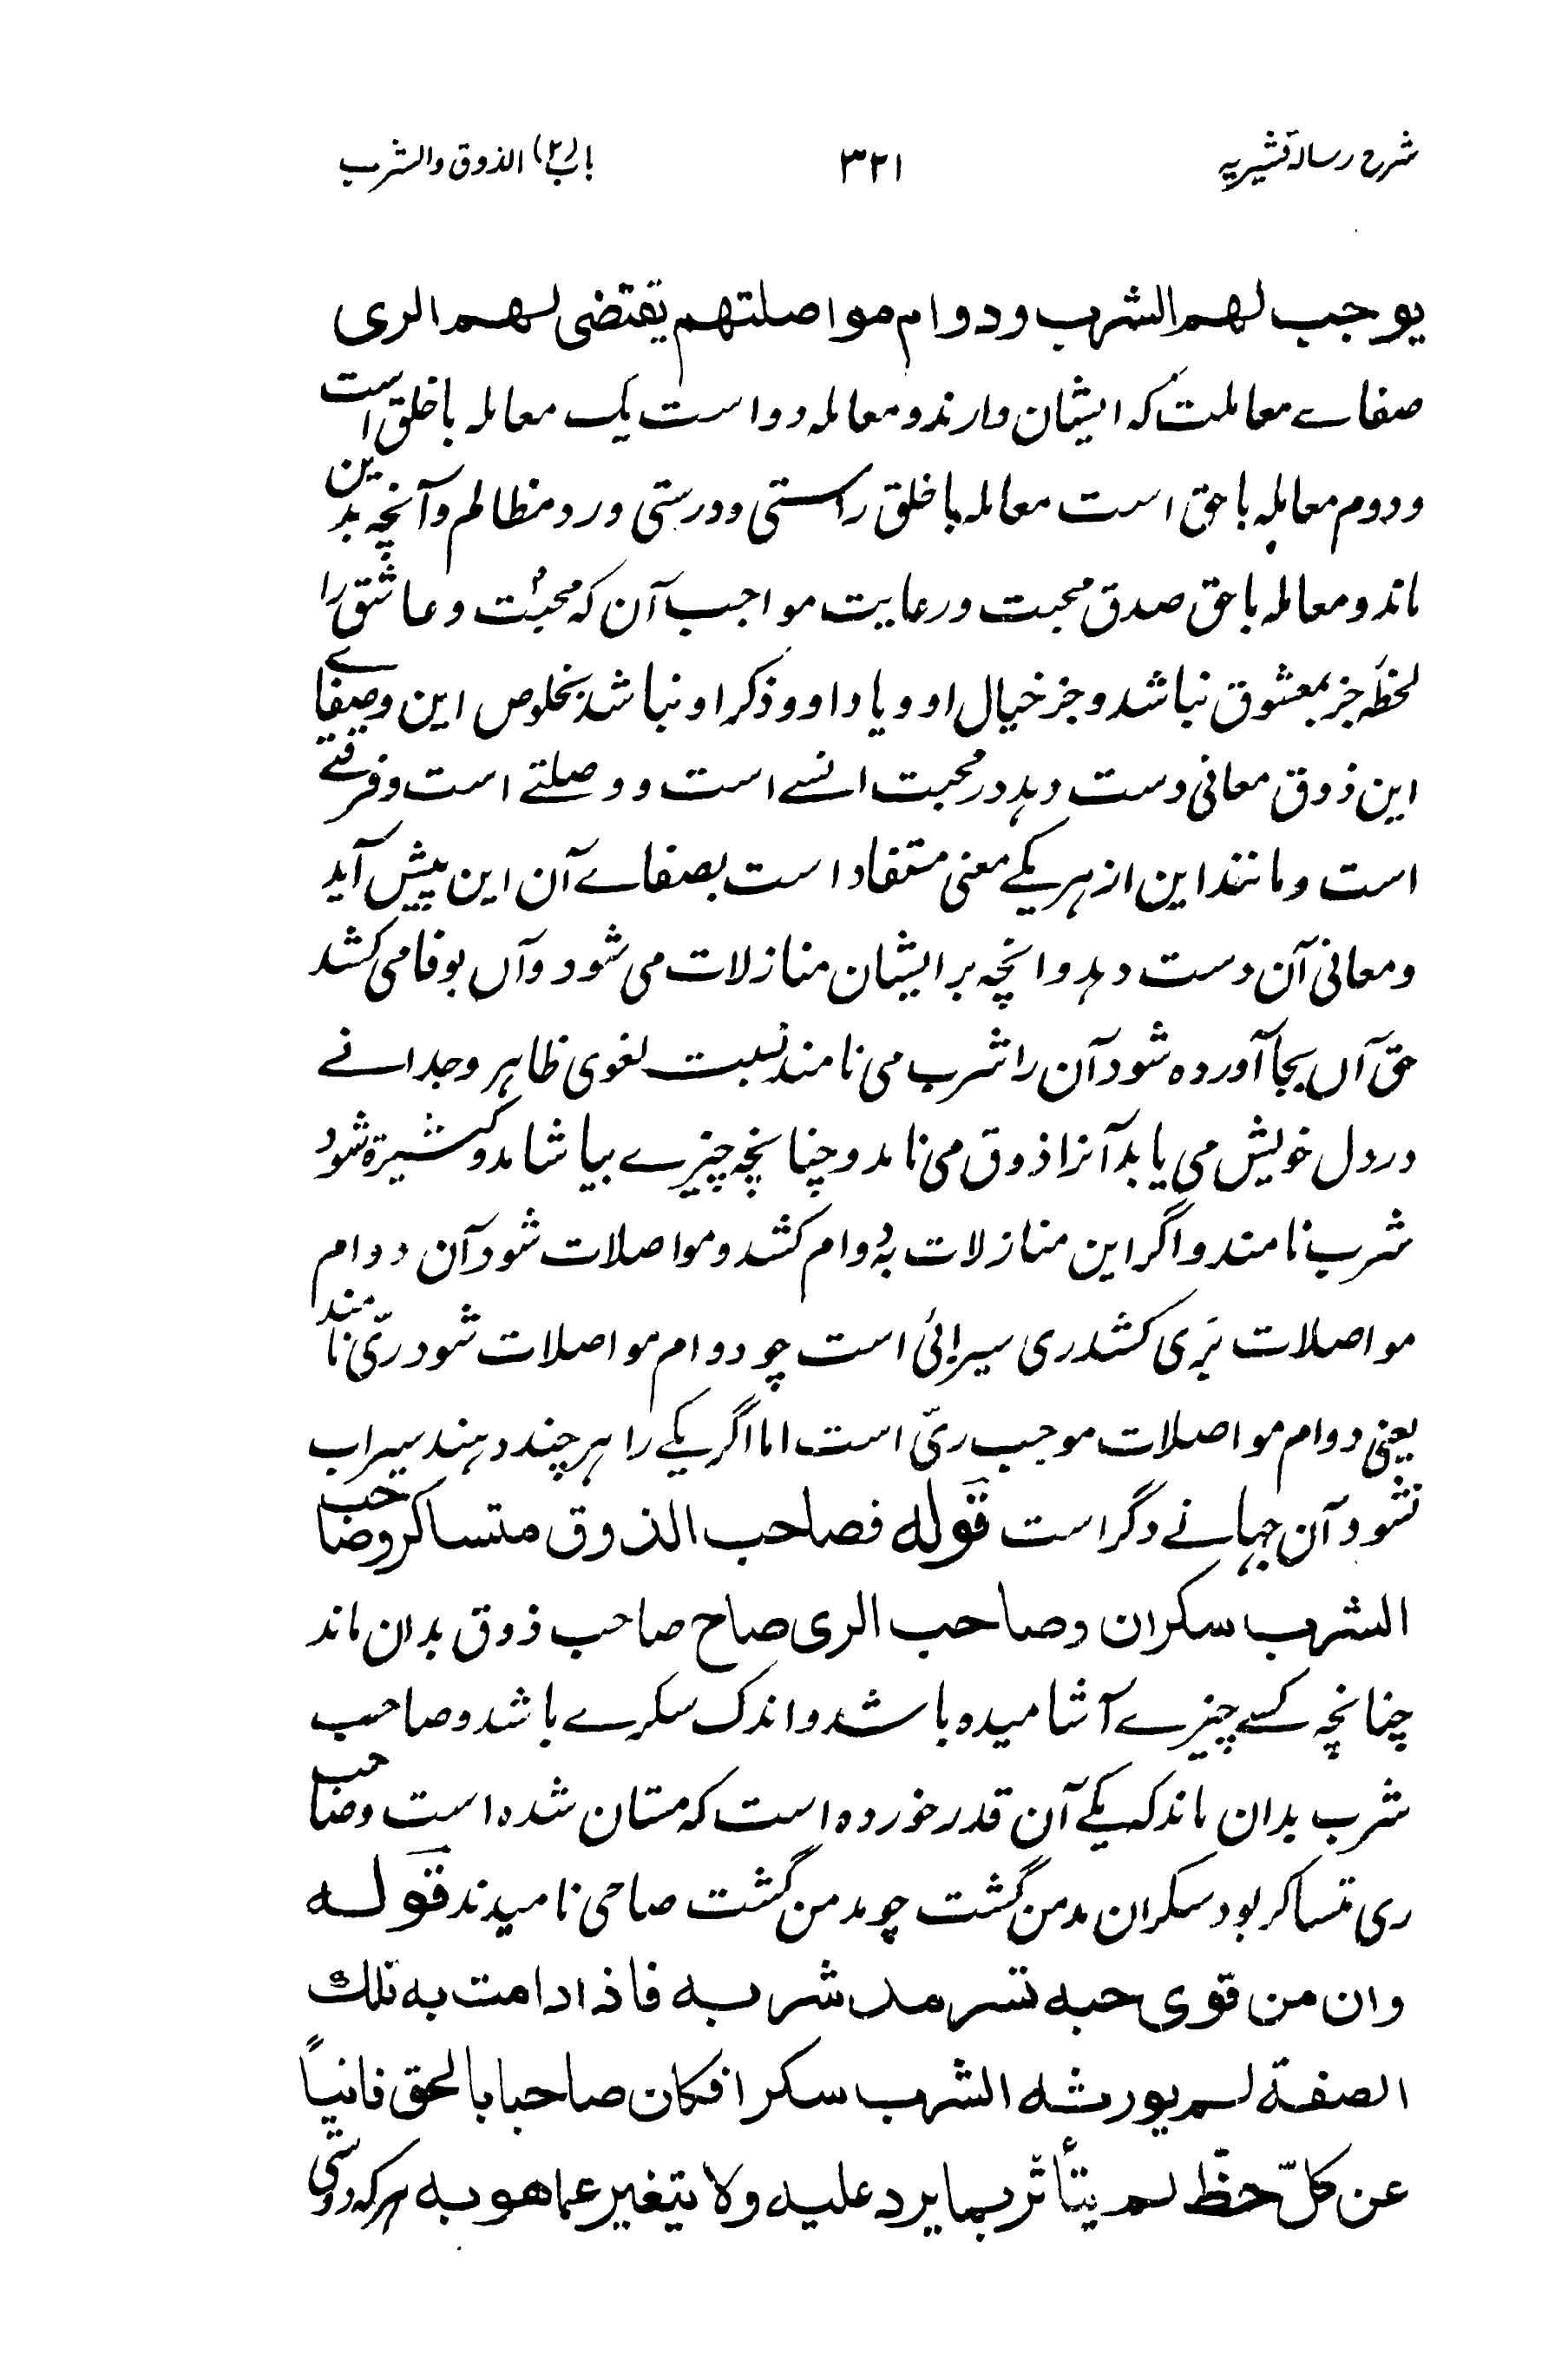 شرح رسالہ قشیریہ
۳۲۱
باب (۲) الذوق والشرب
یوجب لهم الشرب ودوام مواصلتهم یقتضی لهم الری
صفاے معاملت کہ ایشان دارند و معاملہ دو است یک معاملہ باخلق است
ودوم معاملہ باحق است معاملہ باخلق راستی و درستی و رد مظالم وآنچہ بدین
ماند و معاملہ باحق صدق محبت و رعایت مواجب آن کہ محبّت و عاشق را
لحظہ جز بمعشوق نباشد و جز خیال او و یاد او و ذکر او نباشد بخلوص این و صفاے
این ذوق معانی دست دہد در محبت انسے است و وصلتے است و فرقتے
است و مانند این از ہر یکے معنی مستفاد است بصفاے آن این پیش آید
ومعانی آن دست دہد و انچہ بر ایشان منازلات می شود وآں بوفا می کشد
حق آں بجا آوردہ شود آن را شرب می نامند نسبت لغوی ظاہر وجدانے
در دل خویش می یابد آنرا ذوق می نامد و چنانچہ چیزے بیاشامد و کشیرہ شود
شرب نامند و اگر این منازلات بہ دوام کشد و مواصلات شود آن دوام
مواصلات بَری کشد ری سیرابی است چو دوام مواصلات شود ریّ نامند
یعنی دوام مواصلات موجب ریّ است اما اگر یکے را ہر چند دہند سیراب
نشود آن جہانے دگر است قوله فصاحب الذوق متساکر وصاحب
الشرب سکران وصاحب الری صاح صاحب ذوق بدان ماند
چنانچہ کسے چیزے آشامیدہ باشد و اندک سکرے باشد و صاحب
شرب بدان ماند کہ یکے آن قدر خوردہ است کہ مستان شدہ است و صاحب
ری متساکر بود سکران مدمن گشت چو مدمن گشت صاحی نامیدند قوله
وان من قوی حبه تسرمد شربه فاذا دامت به تلك
الصفة لم یورثه الشرب سکرا فکان صاحبا بالحق فانیاً
عن کلّ حظّ لم یتأثر بما یرد علیه ولا یتغیر عما هو به ہر کہ دوستی